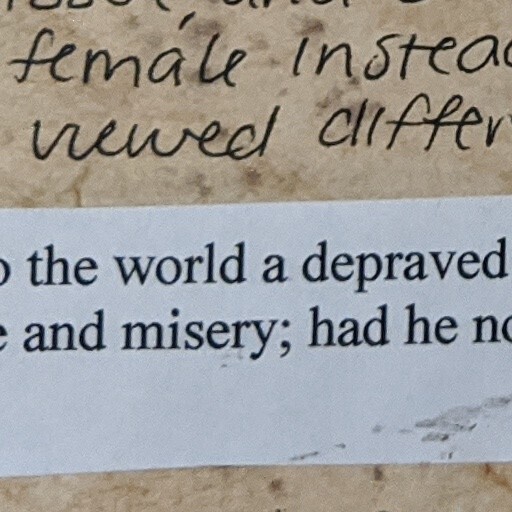 female instead
viewed differ
o the world a depraved
e and misery; had he no